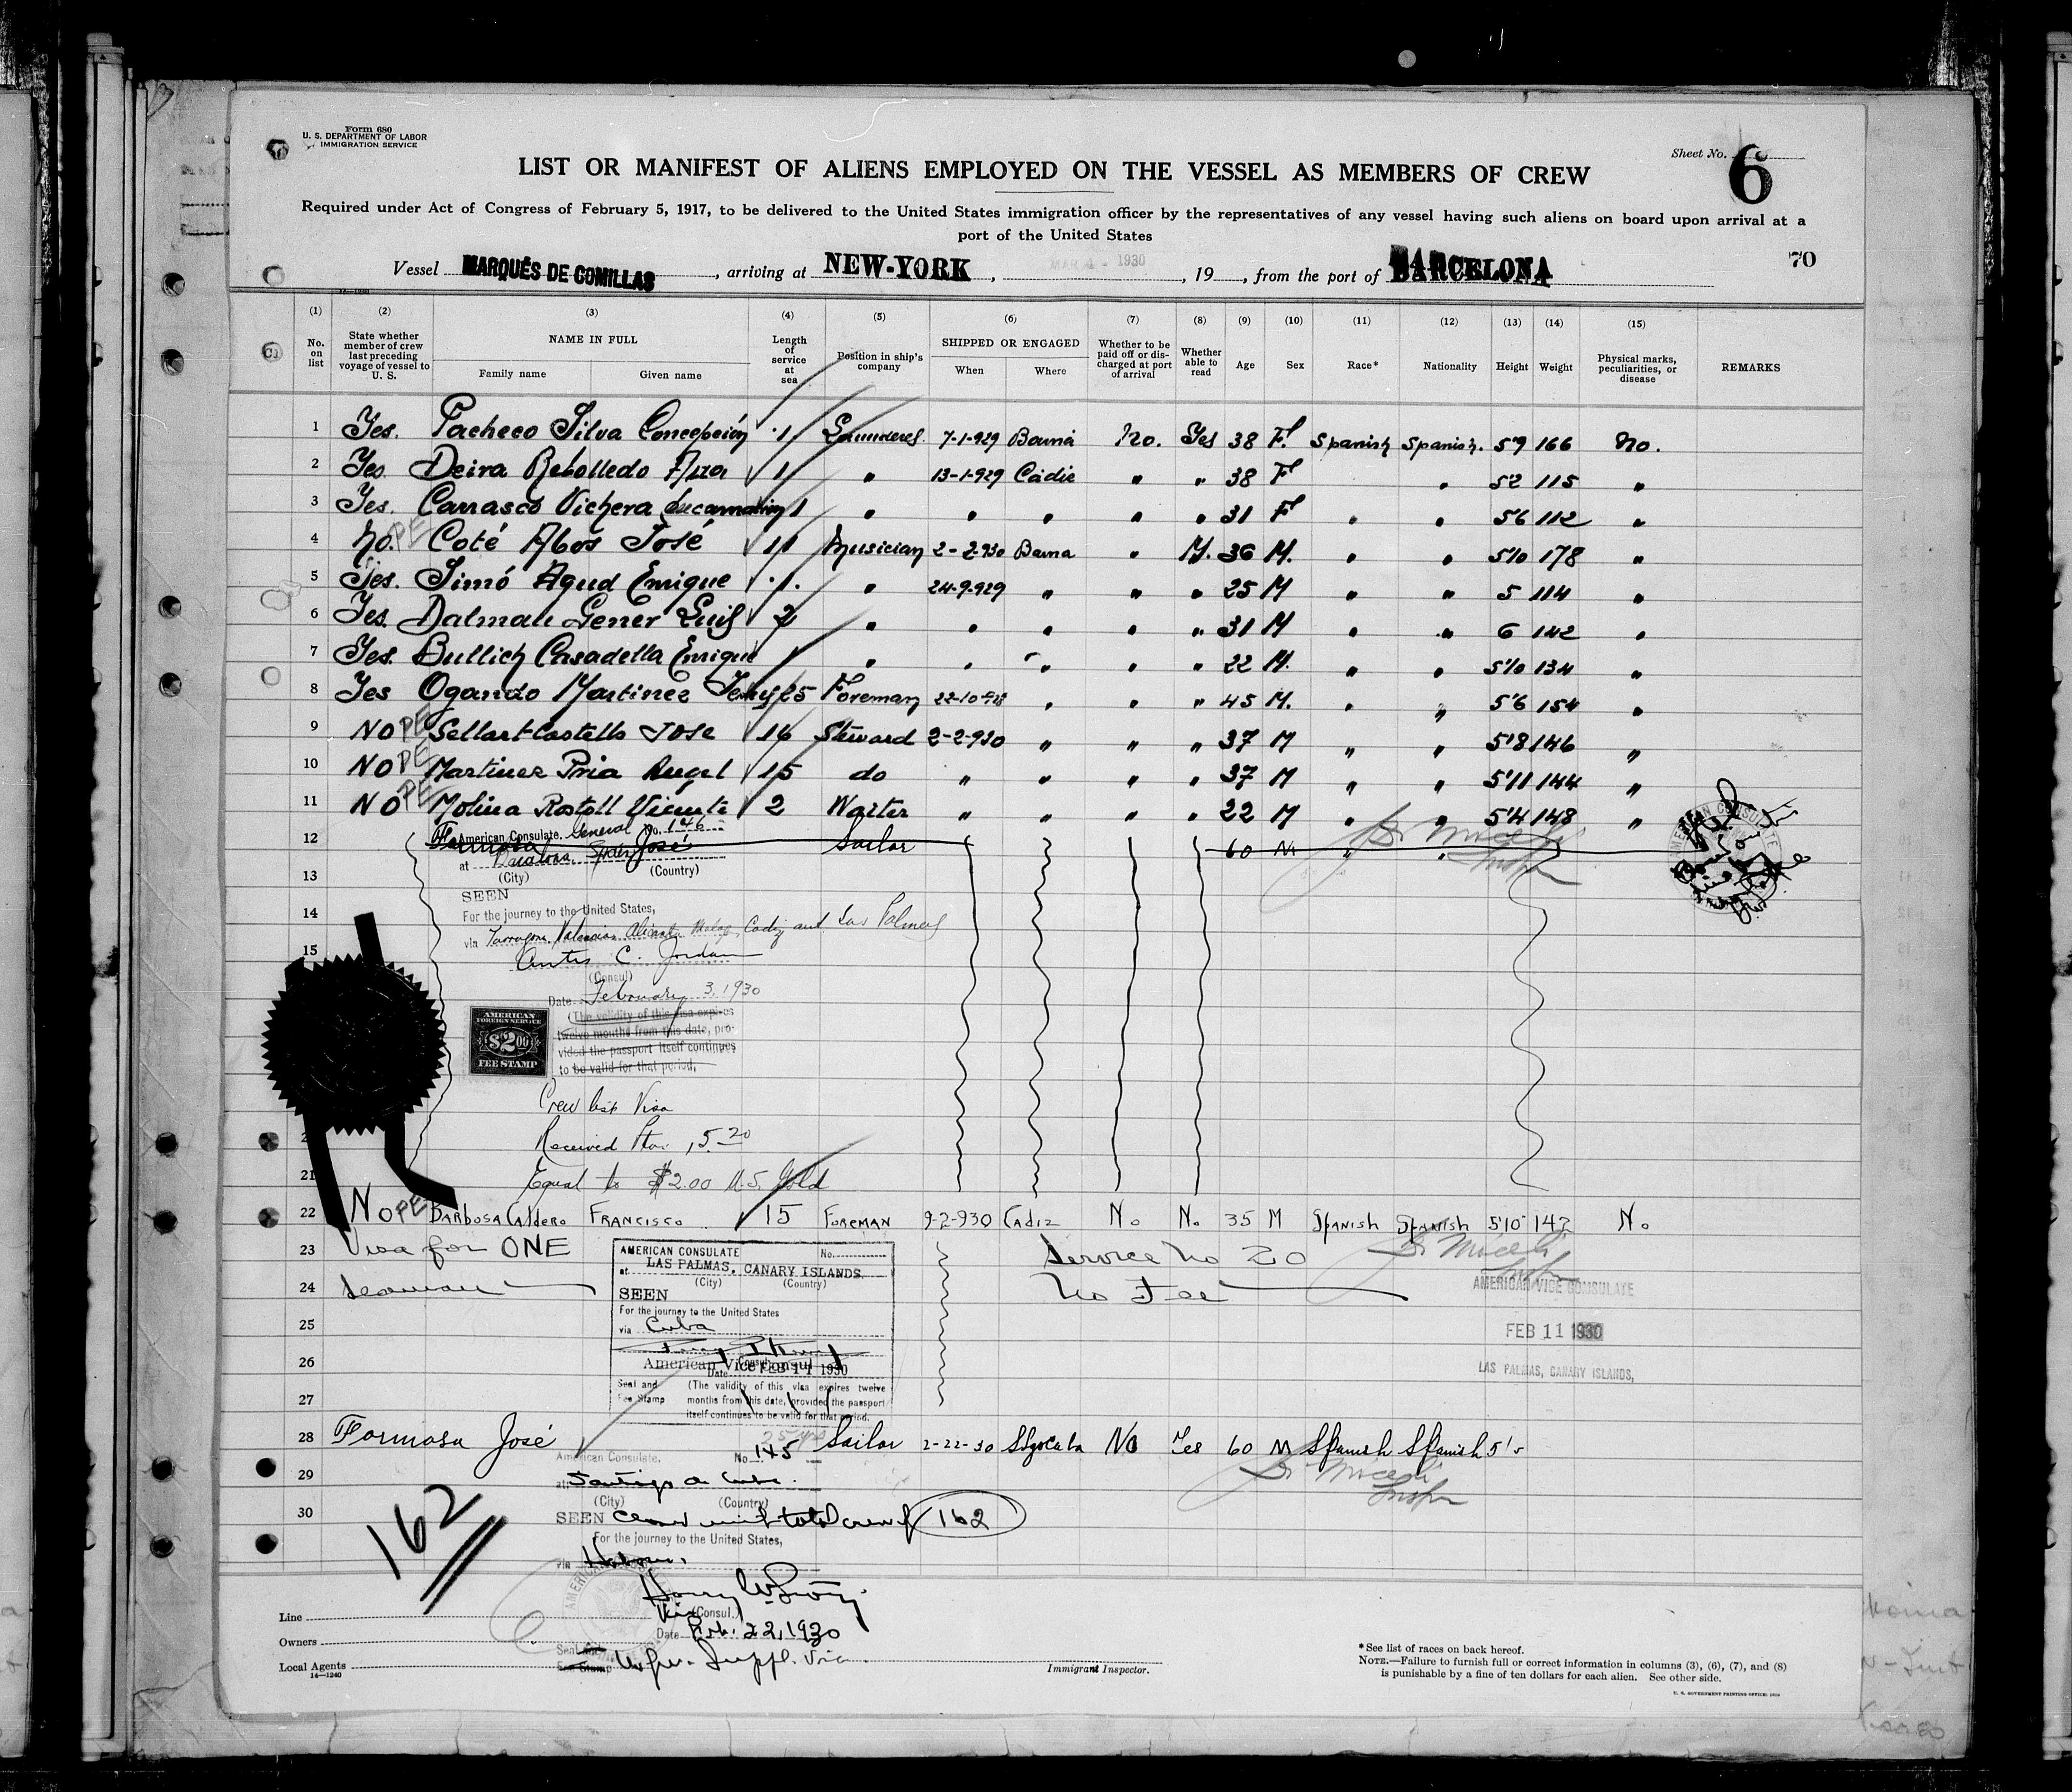 Form 680
U. S. DEPARTMENT OF LABOR
IMMIGRATION SERVICE
Sheet No. 6
LIST OR MANIFEST OF ALIENS EMPLOYED ON THE VESSEL AS MEMBERS OF CREW
Required under Act of Congress of February 5, 1917, to be delivered to the United States immigration officer by the representatives of any vessel having such aliens on board upon arrival at a
port of the United States
70
Vessel MARQUÉS DE COMILLAS, arriving at NEW-YORK, MAR 4 - 1930, 19, from the port of BARCELONA
(1) (2) (3) (4) (5) (6) (7) (8) (9) (10) (11) (12) (13) (14) (15)
No. on list
State whether member of crew last preceding voyage of vessel to U. S.
NAME IN FULL
Family name Given name
Length of service at sea
Position in ship's company
SHIPPED OR ENGAGED
When Where
Whether to be paid off or discharged at port of arrival
Whether able to read
Age Sex Race* Nationality Height Weight
Physical marks, peculiarities, or disease
REMARKS
1 Yes. Pacheco Silva Concepción 1 7-1-929 Barna No. Yes 38 F. Spanish Spanish. 59 166 No.
2 Yes. Deira Rebolledo 1 " 13-1-929 Cádiz " " 38 F " 52 115 "
3 Yes. Carrasco Vichera Encarnación 1 " " " " " 31 F " " 56 112 "
4 No. PE Coté Abos José 11 Musician 2-2-930 Barna " Y. 36 M. " " 5'10 178 "
5 Yes. Simó Agud Enrique 1. " 24-9-929 " " " 25 M " " 5 114 "
6 Yes. Dalmau Gener Luis 2 " " " " " 31 M " " 6 142 "
7 Yes. Bullich Casadella Enrique 1 " " " " " 22 M. " " 5'10 134 "
8 Yes Ogando Martinez 25 Foreman " " " 45 M. " " 5'6 154 "
9 NO PE Sellart Castells Jose 16 Steward 2-2-930 " " " 37 M " " 5'8 146 "
10 NO PE Martinez Pria Angel 15 do " " " " 37 M " " 5'11 144 "
11 NO PE Molina Rostoll Vicente 2 Waiter " " " " 22 M " " 5'4 148 "
12 Formosa José Sailor 60 M " "
American Consulate General No. 146
at Barcelona Spain
13 (City) (Country)
SEEN
14 For the journey to the United States,
via Tarragona, Valencia, Alicante, Malaga, Cadiz and Las Palmas
15 C. Jordan
(Consul)
Date February 3, 1930
AMERICAN FOREIGN SERVICE $2.00 FEE STAMP
(The validity of this visa expires
twelve months from this date, pro-
vided the passport itself continues
to be valid for that period.
Crew list Visa
Received Ptas. 15.20
21 Equal to $2.00 U.S. Gold
22 No PE BARBOSA CALDERO FRANCISCO 15 FOREMAN 9-2-930 CADIZ No No. 35 M SPANISH SPANISH 5'10 142 No
23 Visa for ONE
24 Seaman
Service No 20
No Fee
AMERICAN CONSULATE No.
at LAS PALMAS, CANARY ISLANDS.
(City) (Country)
SEEN
For the journey to the United States
25 via Cuba
26 American Vice Consul
Date FEB 11 1930
Seal and Fee Stamp
27 (The validity of this visa expires twelve
months from this date, provided the passport
itself continues to be valid for that period.
AMERICAN VICE CONSULATE
FEB 11 1930
LAS PALMAS, CANARY ISLANDS,
28 Formosa José 25 yrs Sailor 2-22-30 No Yes 60 M Spanish Spanish 5'5
29 American Consulate. No. 145
at Santiago de Cuba.
(City) (Country)
30 SEEN total crew of 162
For the journey to the United States,
via Habana.
162
(Consul.)
Date Feb. 22, 1930
Suppl. Visa
Line
Owners
Local Agents
14—1240
Immigrant Inspector.
*See list of races on back hereof.
NOTE.—Failure to furnish full or correct information in columns (3), (6), (7), and (8)
is punishable by a fine of ten dollars for each alien. See other side.
U. S. GOVERNMENT PRINTING OFFICE